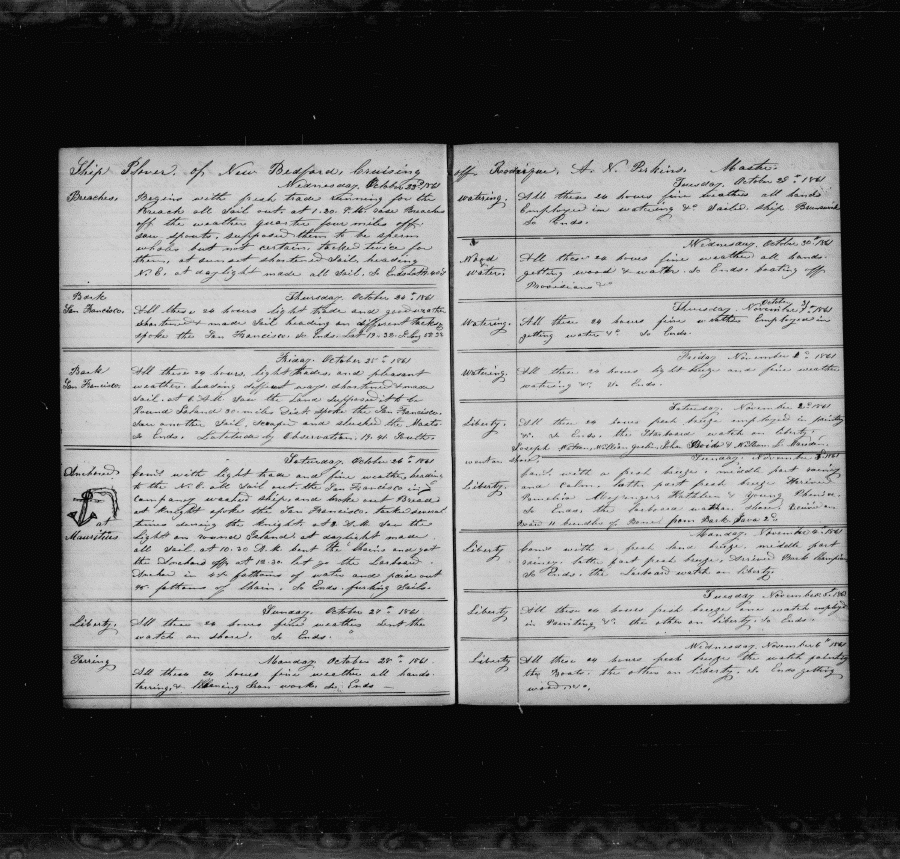 Ship Plover. of New Bedford, Cruising
Wednesday, October 23d 1861
Breaches. Begins with fresh trade running for the
Breach all sail out. at 1.30 P.M. saw Breaches
off the weather quarter four miles off.
saw spouts, supposed them to be sperm
whales but not certain, tacked twice for
them, at sunset shortened sail. heading
N.E. at daylight made all sail. So Ends
Bark San Francisco. Thursday. October 24th 1861
All these 24 hours light trade and good weather
shortened & made sail heading on different tacks
spoke the San Francisco. So Ends. Lat 19.38
Bark San Francisco. Friday. October 25th 1861
All these 24 hours, light trades, and pleasant
weather. heading different ways shortened & made
sail. at 6 A.M. saw the Land supposed it to be
Round Island 30. miles Dist spoke the San Francisco.
saw another sail, scraped and slushed the Masts
So Ends. Latitude by Observation. 19.41 South.
Anchored at Mauritius Saturday. October 26th 1861
Com's with light trade and fine weather, heading
to the N.E. all sail out. the San Francisco in
Company washed ship, and broke out Bread
at Knight spoke the San Francisco. tacked several
times during the Knight. at 2 A.M. saw the
light on round Island. at daylight made
all sail at 10.30 A.M. bent the Chains and got
the Anchors off. at 12.30. let go the Larboard
Anchor in fathoms of water and paid out
fathoms of Chain. So Ends. furling Sails.
Liberty. Sunday. October 27th 1861
All these 24 hours fine weather sent the
watch on shore. So Ends.
Tarring Monday October 28th 1861.
All these 24 hours fine weather all hands
tarring, & work So Ends
off Rodrigue, A. N. Perkins. Master.
Tuesday. October 29th 1861
Watering. All these 24 hours fine weather all hands
Employed in watering &c Sailed ship Brunswick
So Ends.
Wednesday, October 30th 1861
Wood & Water. All these 24 hours fine weather all hands.
getting wood & water. So Ends. boating off
Provisions &c
Thursday. October 31st 1861
Watering. All these 24 hours fine weather Employed in
getting water &c. So Ends.
Friday November 1st 1861
Watering. All these 24 hours light breeze and fine weather
watering &c. So Ends.
Saturday, November 2d 1861
Liberty. All these 24 hours fresh breeze employed in painting
&c. So Ends. the Starboard watch on liberty.
Joseph William John & William
went on shore. November 3 1861
Liberty. Com's. with a fresh breeze, middle part rainy
and calm. latter part fresh breeze Arrived
Pamelia Kathleen & Young Phenix.
So Ends. the Larboard watch on shore.
11 bundles of Bone from Bark Java 2d
Monday. November 4th 1861
Liberty Com's with a fresh land breeze, middle part
rainy, latter part fresh breeze, Arrived Bark Champion
So Ends. the Larboard watch on liberty.
Tuesday November 5th 1861
Liberty All these 24 hours fresh breeze one watch employed
in Painting &c. the other on liberty. So Ends.
Wednesday, November 6th 1861
Liberty All these 24 hours fresh breeze the watch painting
the Boats. the other on Liberty. So Ends getting
wood, &c.